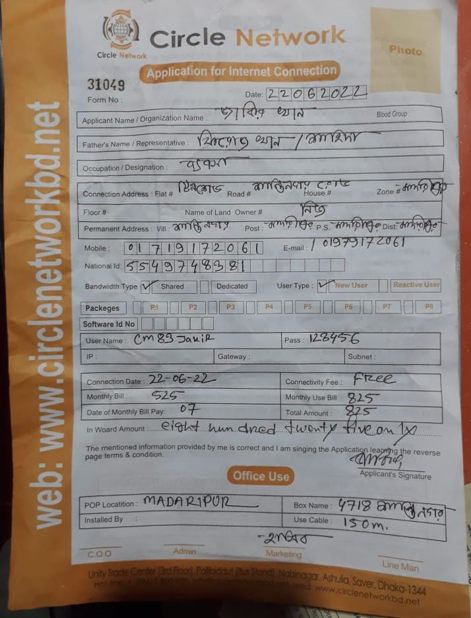 Circle Network
Circle Network
Photo
Application for Internet Connection
31049
Form No
Date: 22062022
Applicant Name / Organization Name : জাকির খান Blood Group :
Father's Name / Representative : ফিরোজ খান /
Occupation / Designation : ব্যবসা
Connection Address : Flat # Road # House # Zone #
Floor # Name of Land Owner # নিজ
Permanent Address : Vill Post : P.S. Dist
Mobile : 01719172061 E-mail : 01979172061
National Id: 5549748381
Bandwidth Type Shared Dedicated User Type : New User Reactive User
Packeges P1 P2 P3 P4 P5 P6 P7 P8
Software Id No
User Name : CM83 Jakir Pass : 123456
IP : Gateway : Subnet :
Connection Date : 22-06-22 Connectivity Fee : Free
Monthly Bill : 525 Monthly Use Bill : 825
Date of Monthly Bill Pay: 07 Total Amount : 825
In Woard Amount : eight hundred twenty five only
The mentioned information provided by me is correct and I am singing the Application learning the reverse
page terms & condition.
Applicant's Signature
Office Use
POP Locatition : MADARIPUR Box Name : 4718
Installed By : Use Cable : 150m.
C.O.O Admin Marketing Line Man
Unity Trade Center (3rd Floor), (Bus Stand), Nabinagar, Ashulia, Saver, Dhaka-1344
www.circlenetworkbd.net
web: www.circlenetworkbd.net